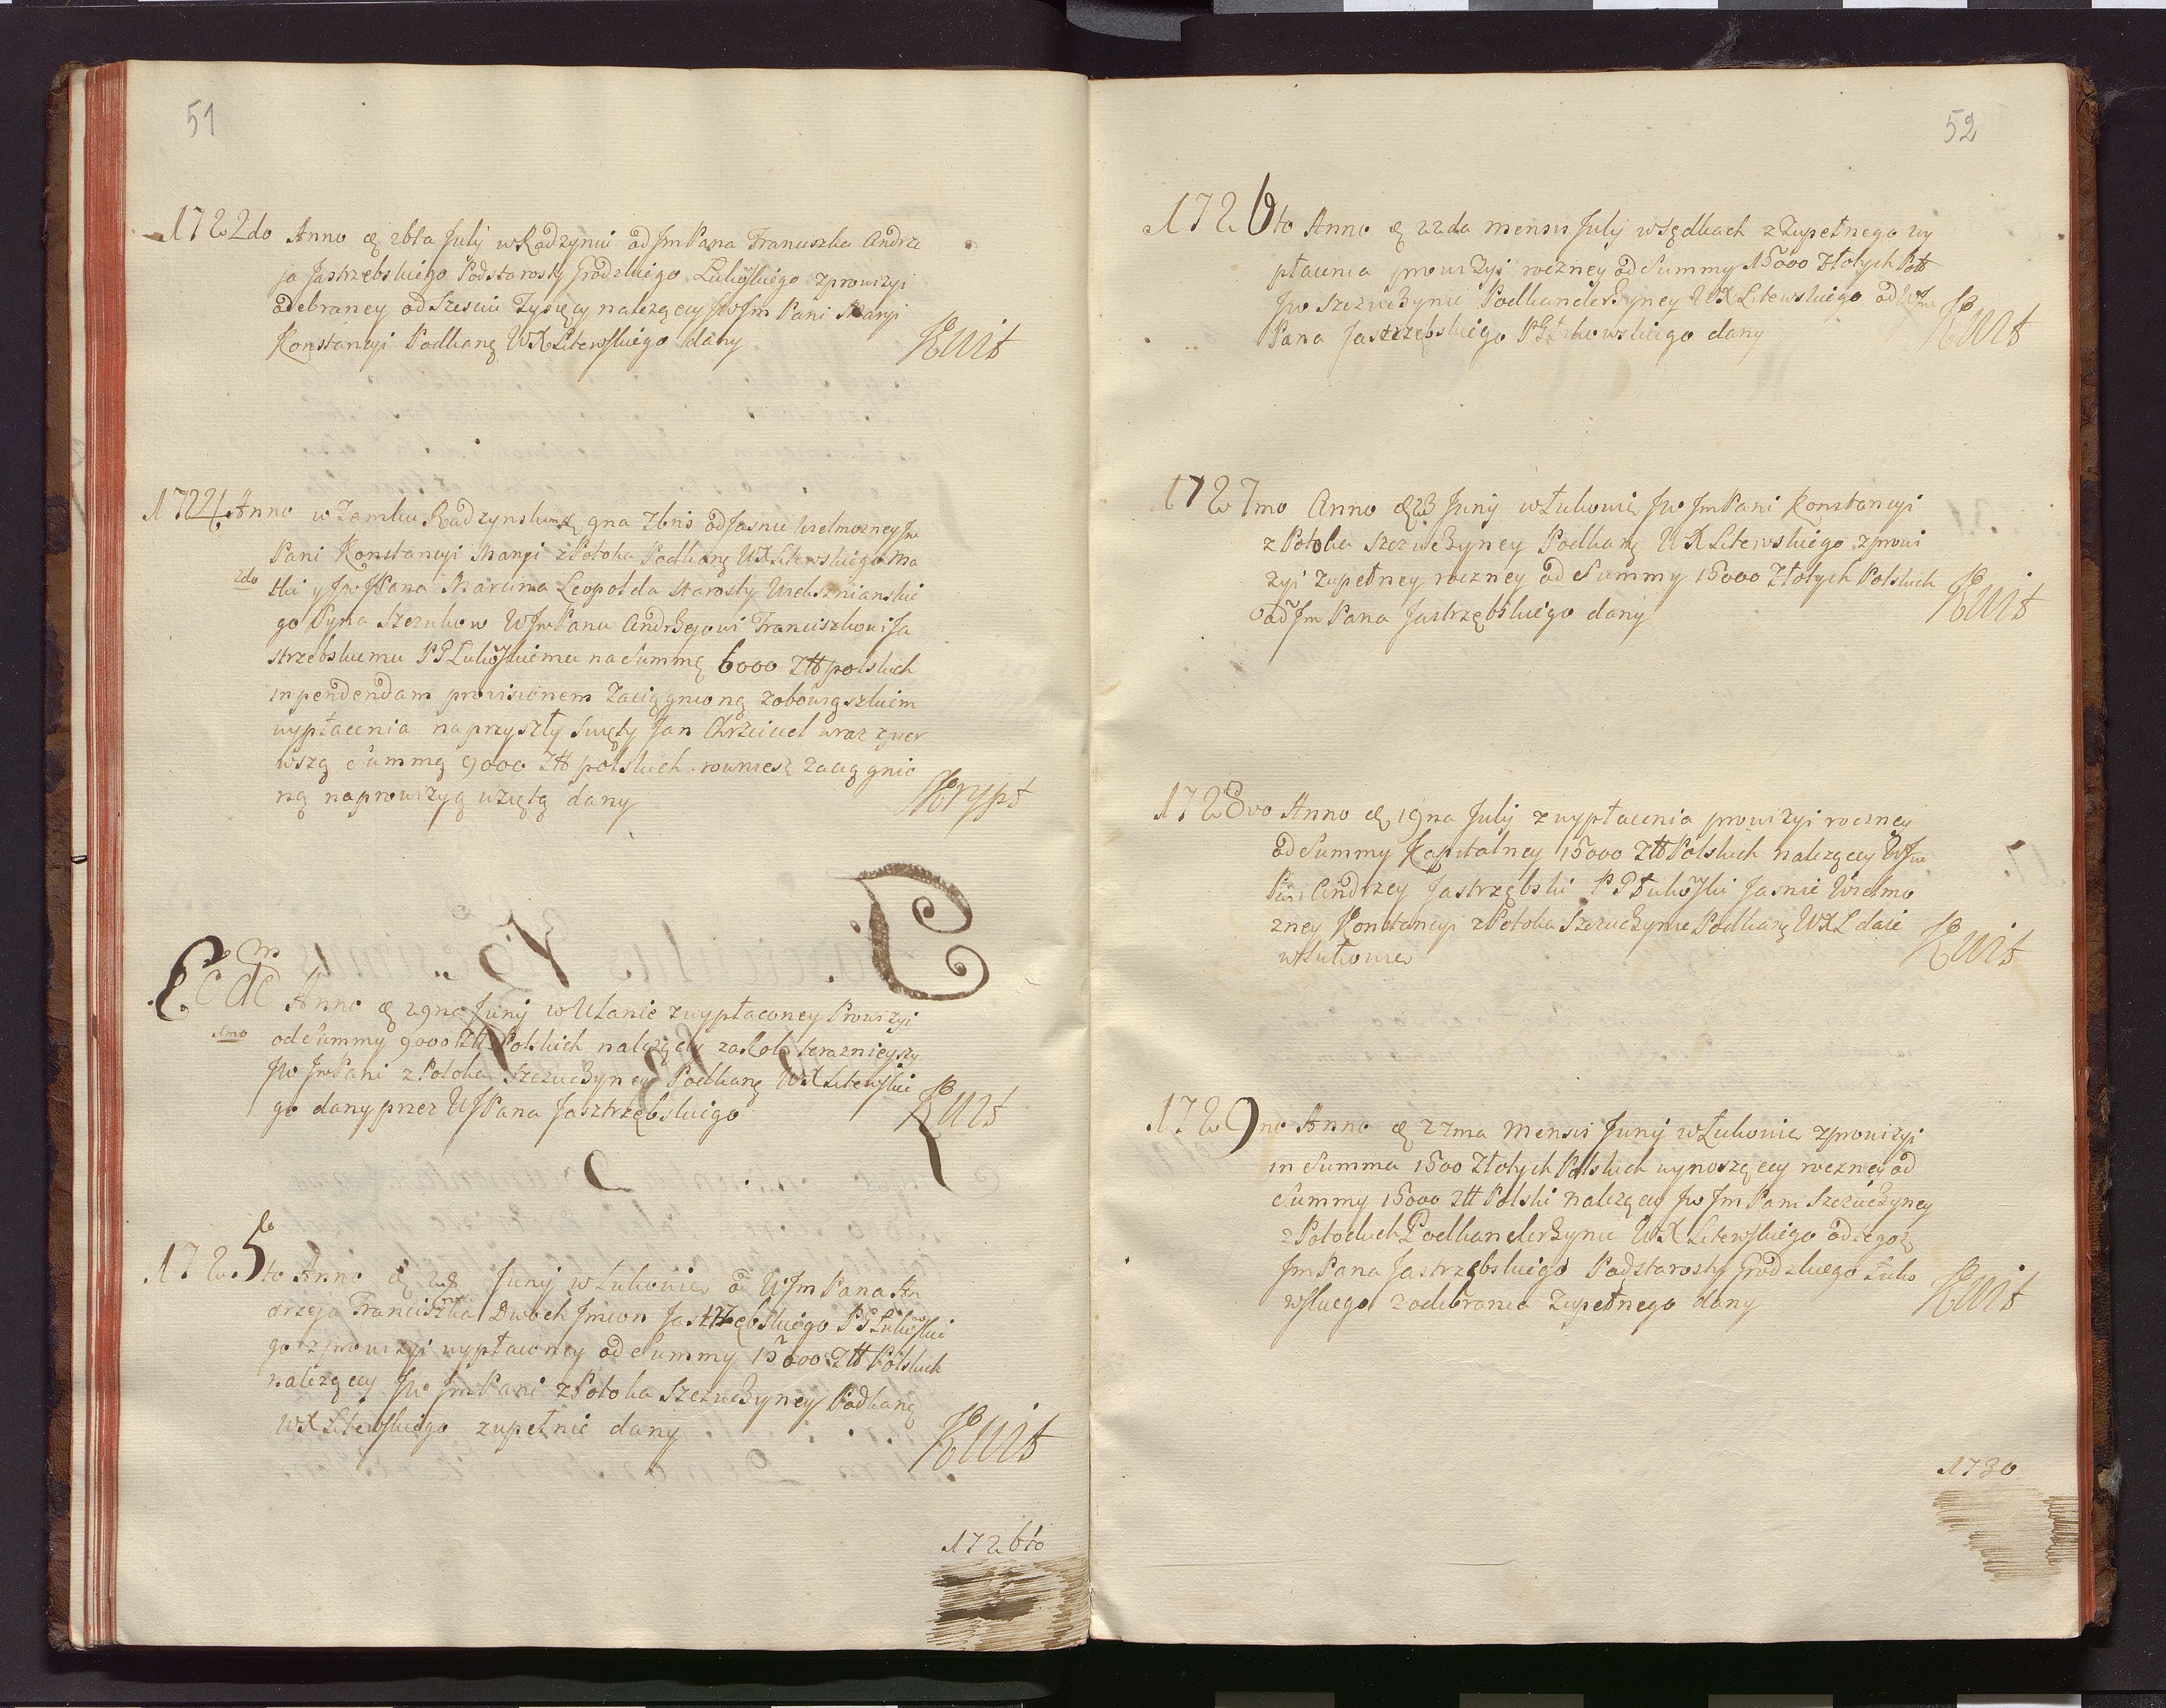 51
1722do Anno & 26ta July w Radzyniu od Jm Pana Franciszka Andrze
ja Jastrzębskiego Podstarosty Grodzkiego Łukowskiego z prowizyi
odebraney od Szesciu Tysięcy nalezącey Jw Jm Pani Maryi
Konstancyi Podkanę WXLitewskiego dany
Kwit
1724 Anno w Zamku Radzynskim & 9na Xbris od Jasnie Wielmozney Jm
Pani Konstancyi Maryi z Potoka Podkanę WXLitewskiego Ma
2do
tki y Jw JPana Marcina Leopolda Starosty Wielsznianskie
go Syna Szczukow WJm Panu Andrzejowi Franciszkowi Ja
strzebskiemu PGLukowskiemu na Summę 6000 Ztt polskich
in pendendam provisionem Zaciągnioną z obowiązkiem
wypłacenia na przyszły Swięty Jan Chrzciciel wraz z pier
wszą Summą 9000 Ztt polskich rowniesz zaciągnio
ną na prowizyą wziętą dany
Skrypt
Eodem Anno & 29na Juny w Ulanie z wypłaconey Prowizyi
1mo
od Summy 9000 Ztt Polskich nalezącey za Rok teraznieyszy
Jw Jm Pani z Potoka Szczuczyney Podkanę WXLitewskie
go dany przez WJPana Jasztrzębskiego
Kwit
1725to Anno & 28 Juny w Łukowie od WJm Pana An
drzeja Franciszka Dwoch Jmion Jastrzębskiego PGLukowskie
go z prowizyi wypłaconey od Summy 15000 Ztt Polskich
nalezącey Jw Jm Pani z Potoka Szczuczyney Podkanę
WXLitewskiego zupełnie dany
Kwit
1726to
52
1726to Anno & 22da Mensis July w Sędkach z Zupełnego wy
płacenia prowizyi roczney od Summy 15000 Złotych Pol
Jw Szczuczynie Podkanclerzyney WXLitewskiego od WJm
Pana Jastrzębskiego PGŁukowskiego dany
Kwit
1727mo Anno & 23 Juny w Łukowie Jw Jm Pani Konstancyi
z Potoka Szczuczyney Podkanę WXLitewskiego z prowi
zyi zupełney roczney od Summy 15000 Złotych Polskich
od Jm Pana Jastrzębskiego dany
Kwit
1728vo Anno & 19na July z wypłacenia prowizyi roczney
od Summy Kapitalney 15000 Ztt Polskich nalezącey WJm
Pan Andrzey Jastrzębski PGŁukowski Jasnie Wielmo
zney Konstancyi z Potoka Szczuczynie Podkanę WXL daie
w Łukowie
Kwit
1729no Anno & 27ma Mensis Juny w Łukowie z prowizyi
in Summa 1500 Złotych Polskich wynoszącey roczney od
Summy 15000 Ztt Polski nalezącey Jw Jm Pani Szczuczyney
z Potockich Podkanclerzynie WXLitewskiego od tegosz
Jm Pana Jastrzębskiego Podstarosty Grodzkiego Łuko
wskiego z odebrania Zupełnego dany
Kwit
1730